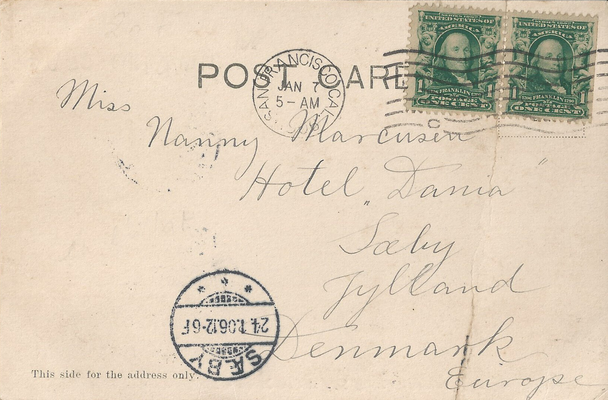 POST CARD
SAN FRANCISCO, CAL.
JAN 7
5-AM
UNITED STATES OF AMERICA
FRANKLIN
POSTAGE
ONE CENT
UNITED STATES OF AMERICA
FRANKLIN
POSTAGE
ONE CENT
Miss
Nanny Marcusen
Hotel „Dania"
Sæby
Jylland
Denmark
Europe
24.1.06.12-6F
SÆBY
This side for the address only.